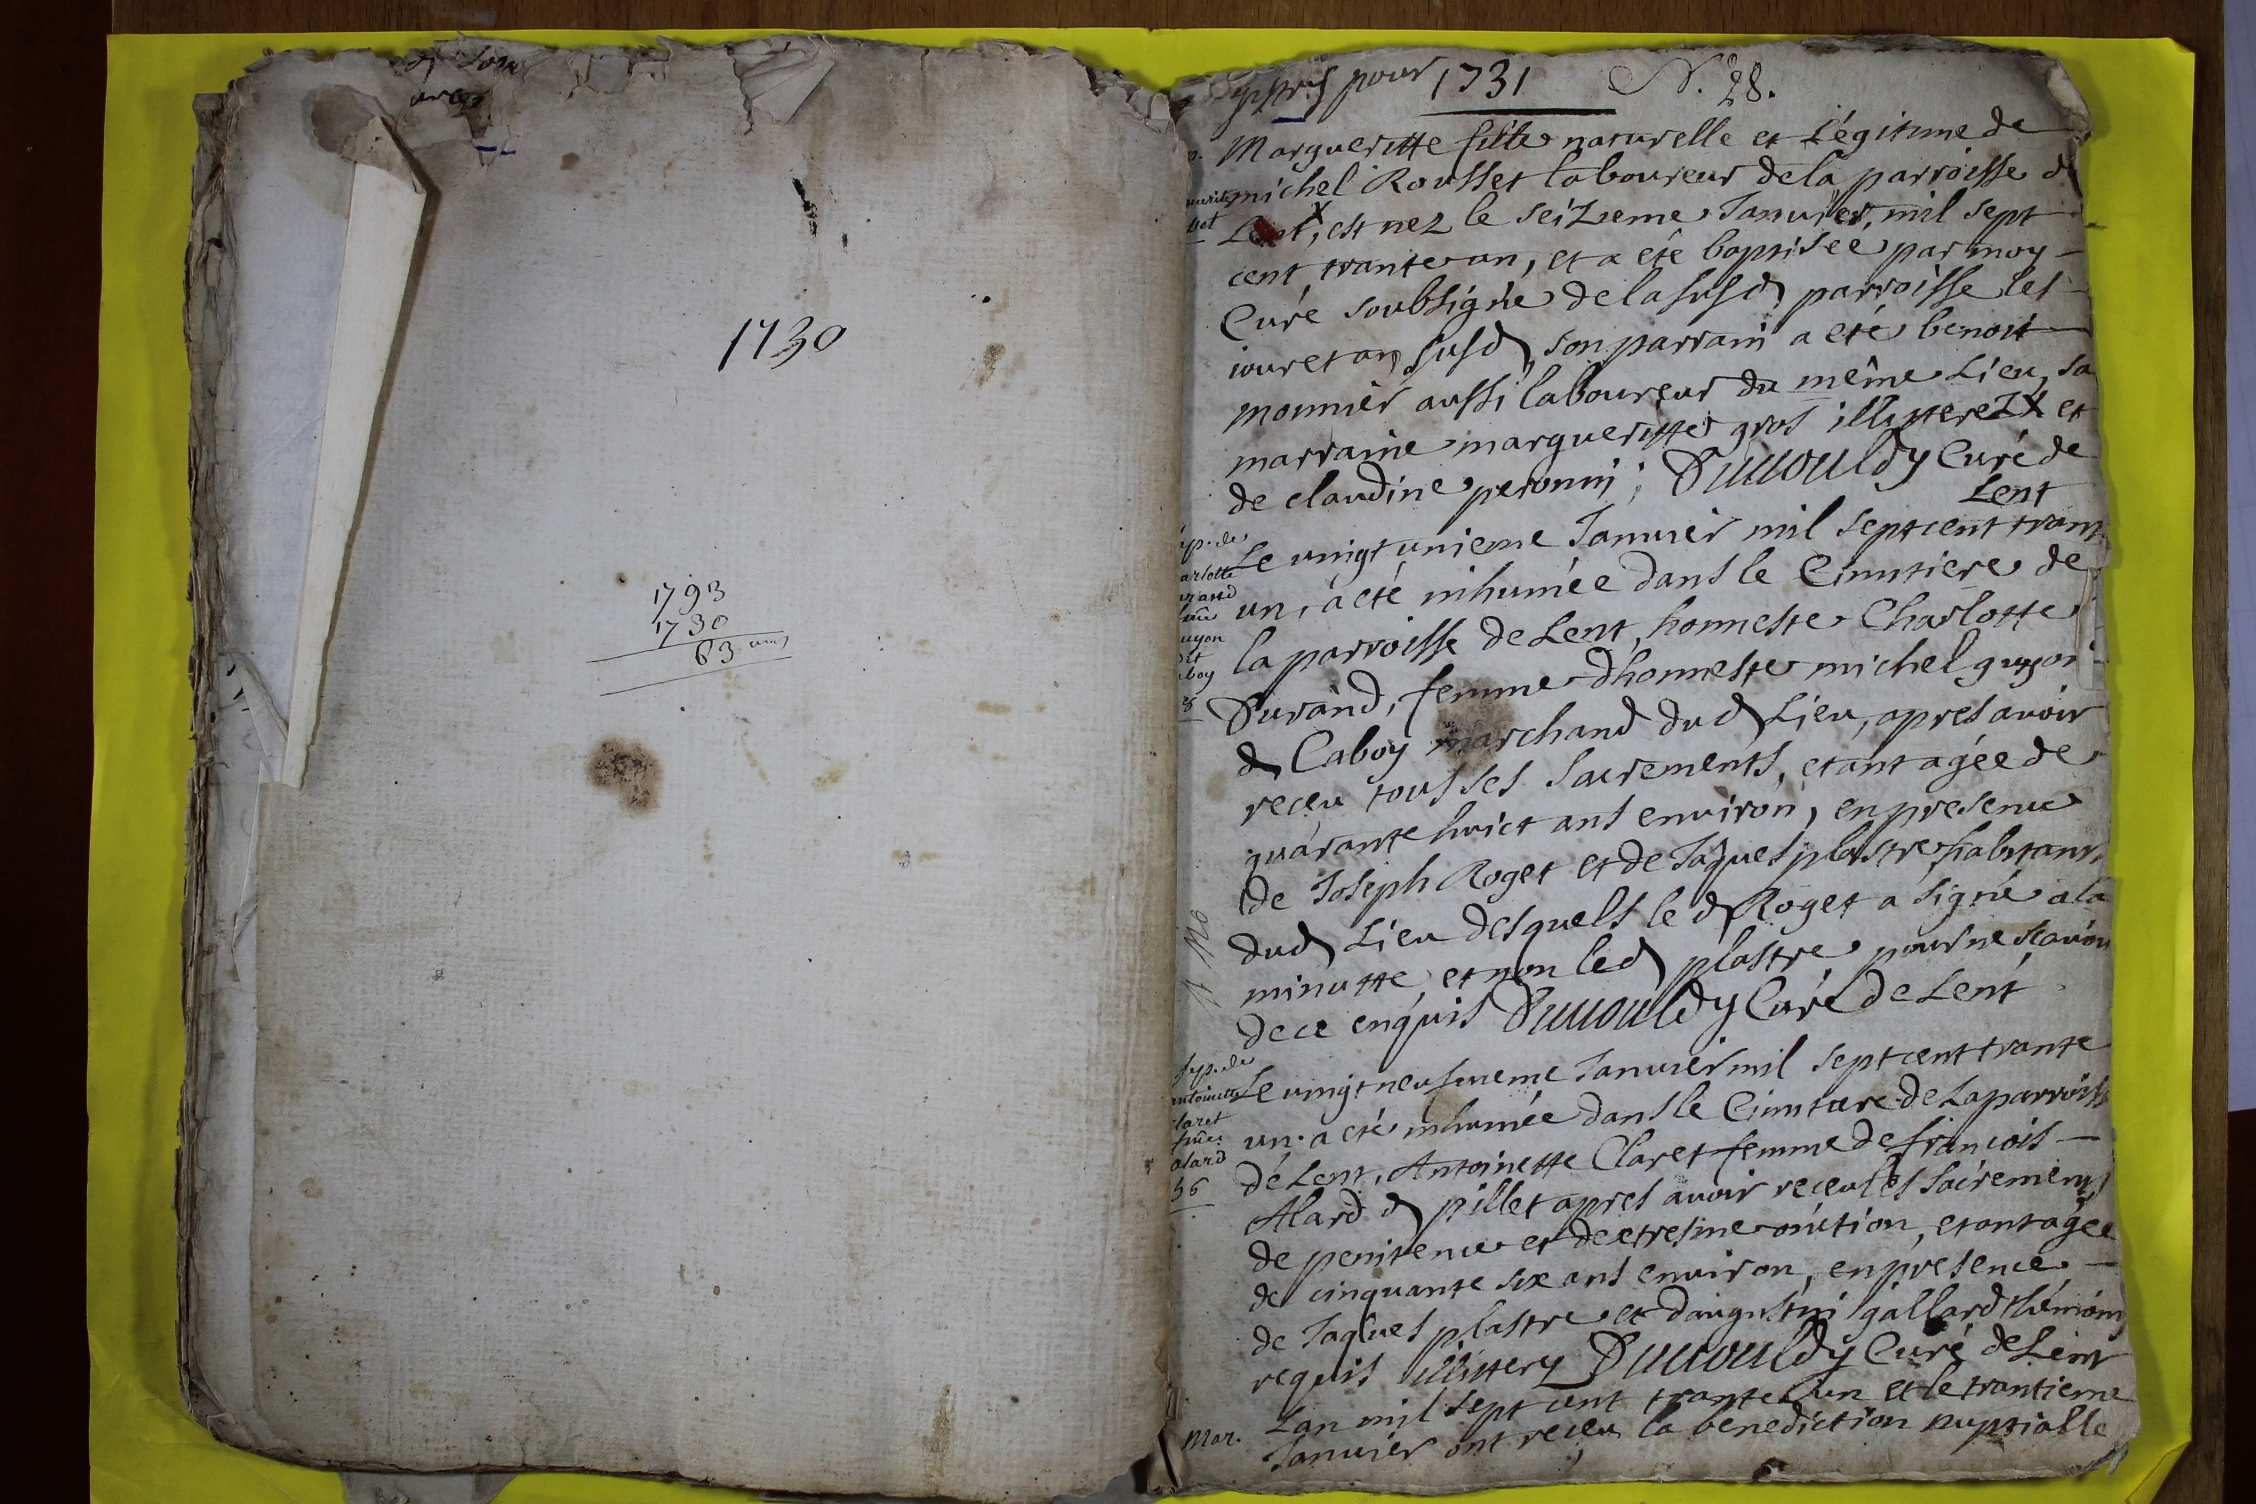 1730
1793
1730
63 ans
pour 1731 N. 28.
Margueritte fille naturelle et Légitime de
michel Rousset laboureur de la parroisse d
Lent, est nez le seizieme Januier, mil sept
cent trante un, et a eté baptisée par moy
Curé soubsigné de la susd parroisse les
iour et an susd, son parrain a eté benoit
monnier aussi laboureur du même Lieu, sa
marraine margueritte gros illitterez et
de claudine peronin; Curé de
Lent
Syp. de
arlotte
urand
fme
uyon
dit
aboy
Le vingt unieme Januier mil sept cent trant
un, a eté inhumée dans le Cimitiere de
la parroisse de Lent, honneste Charlotte
Durand, femme dhonneste michel guyon
d Caboy marchand dud Lieu, apres avoir
receu tous ses sacrements, etant agée de
quarante huict ans environ, en presence
de Joseph Roget et de Jaques plastre habitants
dud Lieu desquels le d Roget a signé a la
minutte, et non led plastre pour ne scavoir
de ce enquis Curé de Lent
Syp. de
antoinette
claret
fme
alard
56
Le vingt neufvieme Januier mil sept cent trante
un. a eté inhumée dans le Cimitiere de La parroisse
de Lent, Antoinette Claret femme de françois
Alard d pillet apres avoir receu les sacrements
de penitence et de extresme onction, etant agée
de cinquante six ans environ, en presence
de Jaques plastre et daugustin gallard témoins
requis illitterz Curé de Lent
Mar.
Lan mil sept cent trante un et le trantieme
Januier ont receu la benediction nuptialle